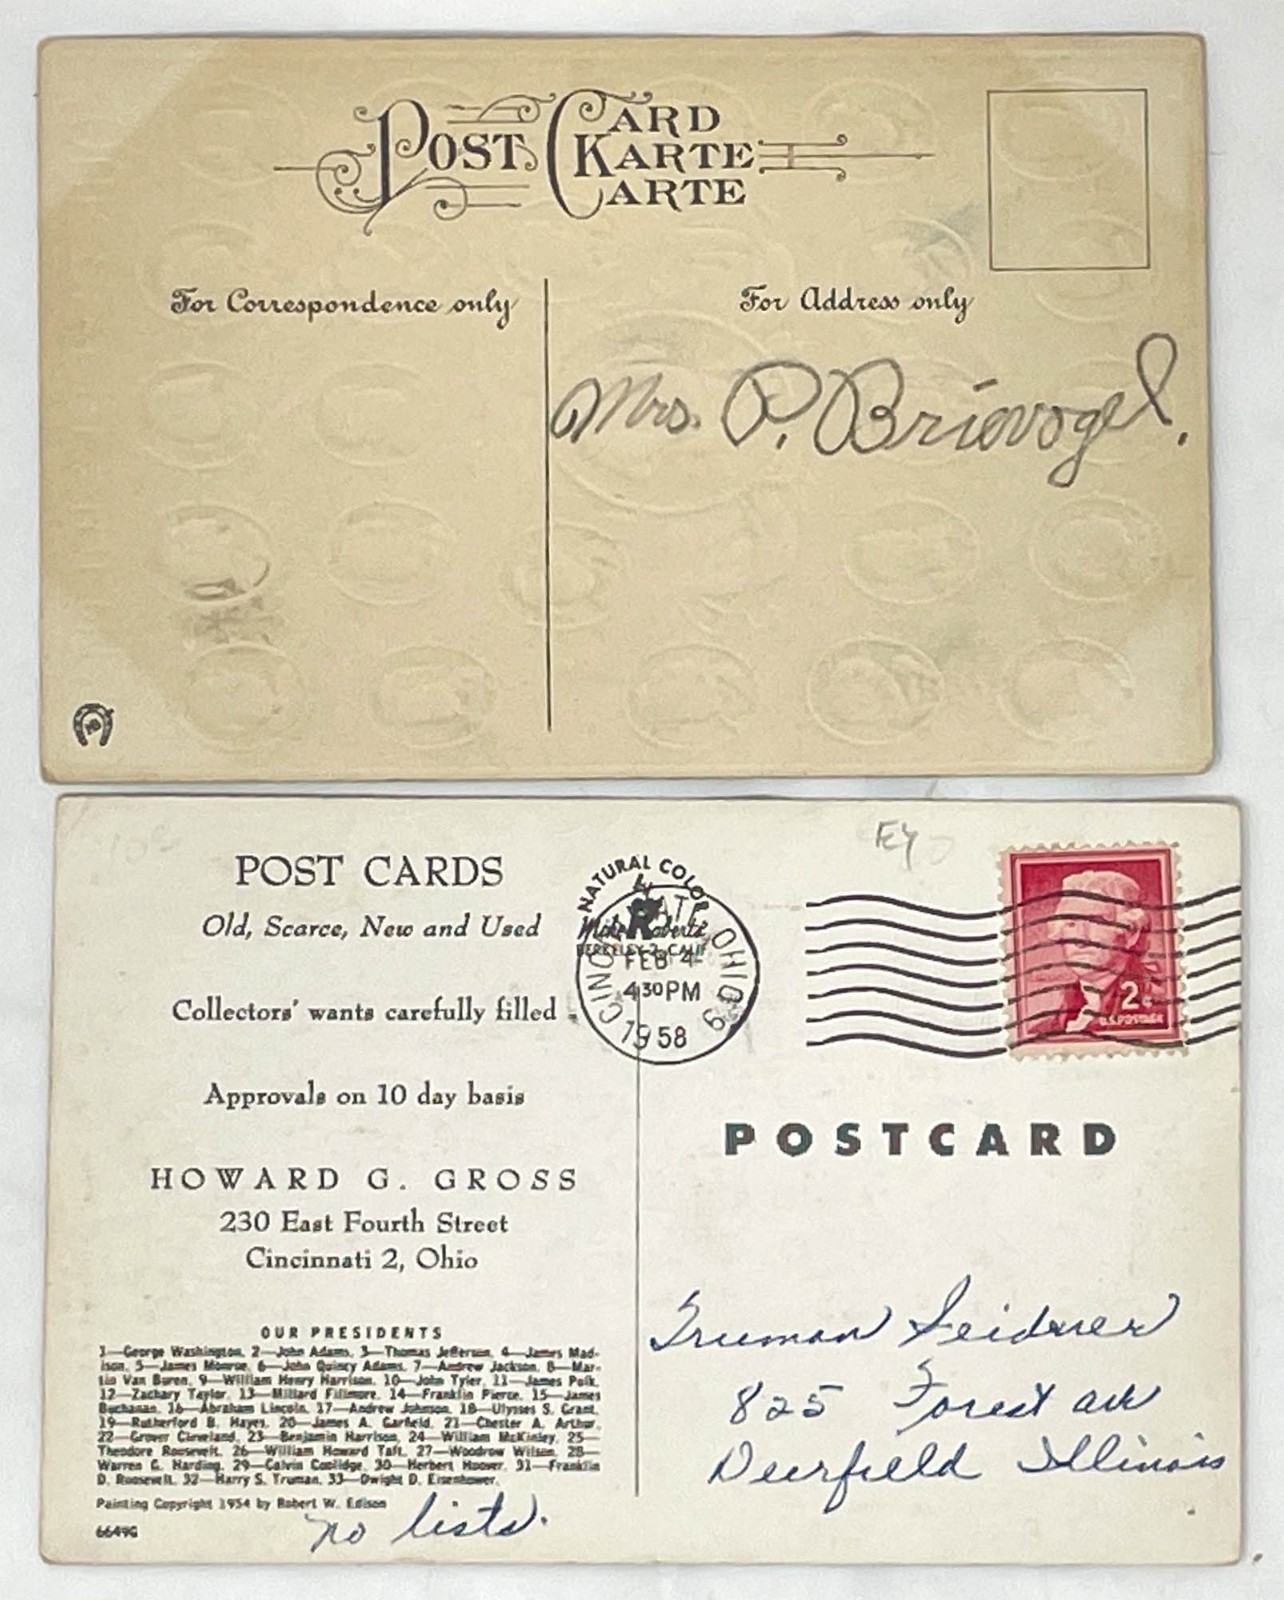 POST CARD
KARTE
CARTE
For Correspondence only
For Address only
Mrs. P. Brievogel.
POST CARDS
Old, Scarce, New and Used
Collectors' wants carefully filled
Approvals on 10 day basis
HOWARD G. GROSS
230 East Fourth Street
Cincinnati 2, Ohio
NATURAL COLOR
Mike Roberts
BERKELEY 2, CALIF
OHIO 9
FEB 4
430 PM
1958
2¢
U.S. POSTAGE
POSTCARD
Truman Seidner
825 Forest Ave
Deerfield Illinois
OUR PRESIDENTS
1—George Washington, 2—John Adams, 3—Thomas Jefferson, 4—James Mad-
ison, 5—James Monroe, 6—John Quincy Adams, 7—Andrew Jackson, 8—Mar-
tin Van Buren, 9—William Henry Harrison, 10—John Tyler, 11—James Polk,
12—Zachary Taylor, 13—Millard Fillmore, 14—Franklin Pierce, 15—James
Buchanan, 16—Abraham Lincoln, 17—Andrew Johnson, 18—Ulysses S. Grant,
19—Rutherford B. Hayes, 20—James A. Garfield, 21—Chester A. Arthur,
22—Grover Cleveland, 23—Benjamin Harrison, 24—William McKinley, 25—
Theodore Roosevelt, 26—William Howard Taft, 27—Woodrow Wilson, 28—
Warren G. Harding, 29—Calvin Coolidge, 30—Herbert Hoover, 31—Franklin
D. Roosevelt, 32—Harry S. Truman, 33—Dwight D. Eisenhower.
Painting Copyright 1954 by Robert W. Edison
6649G
no lists.